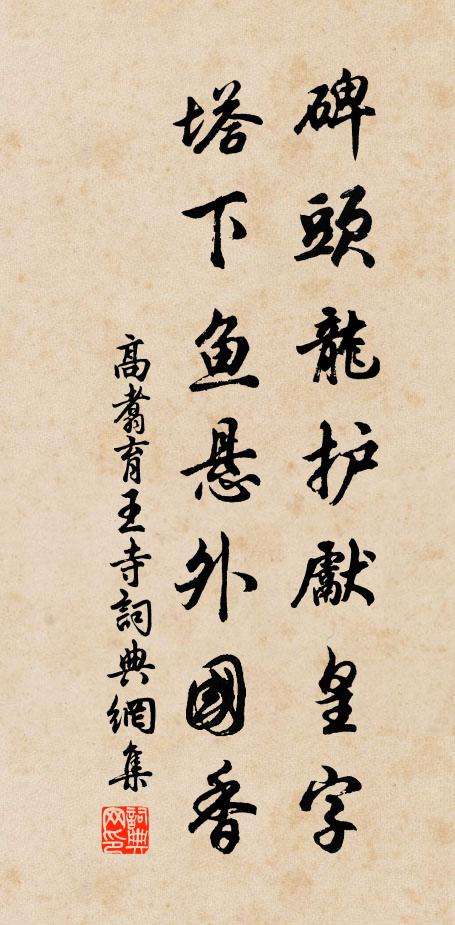 碑頭龍护獻皇字
塔下鱼悬外國香
高翥育王寺詞典網集
詞典网印